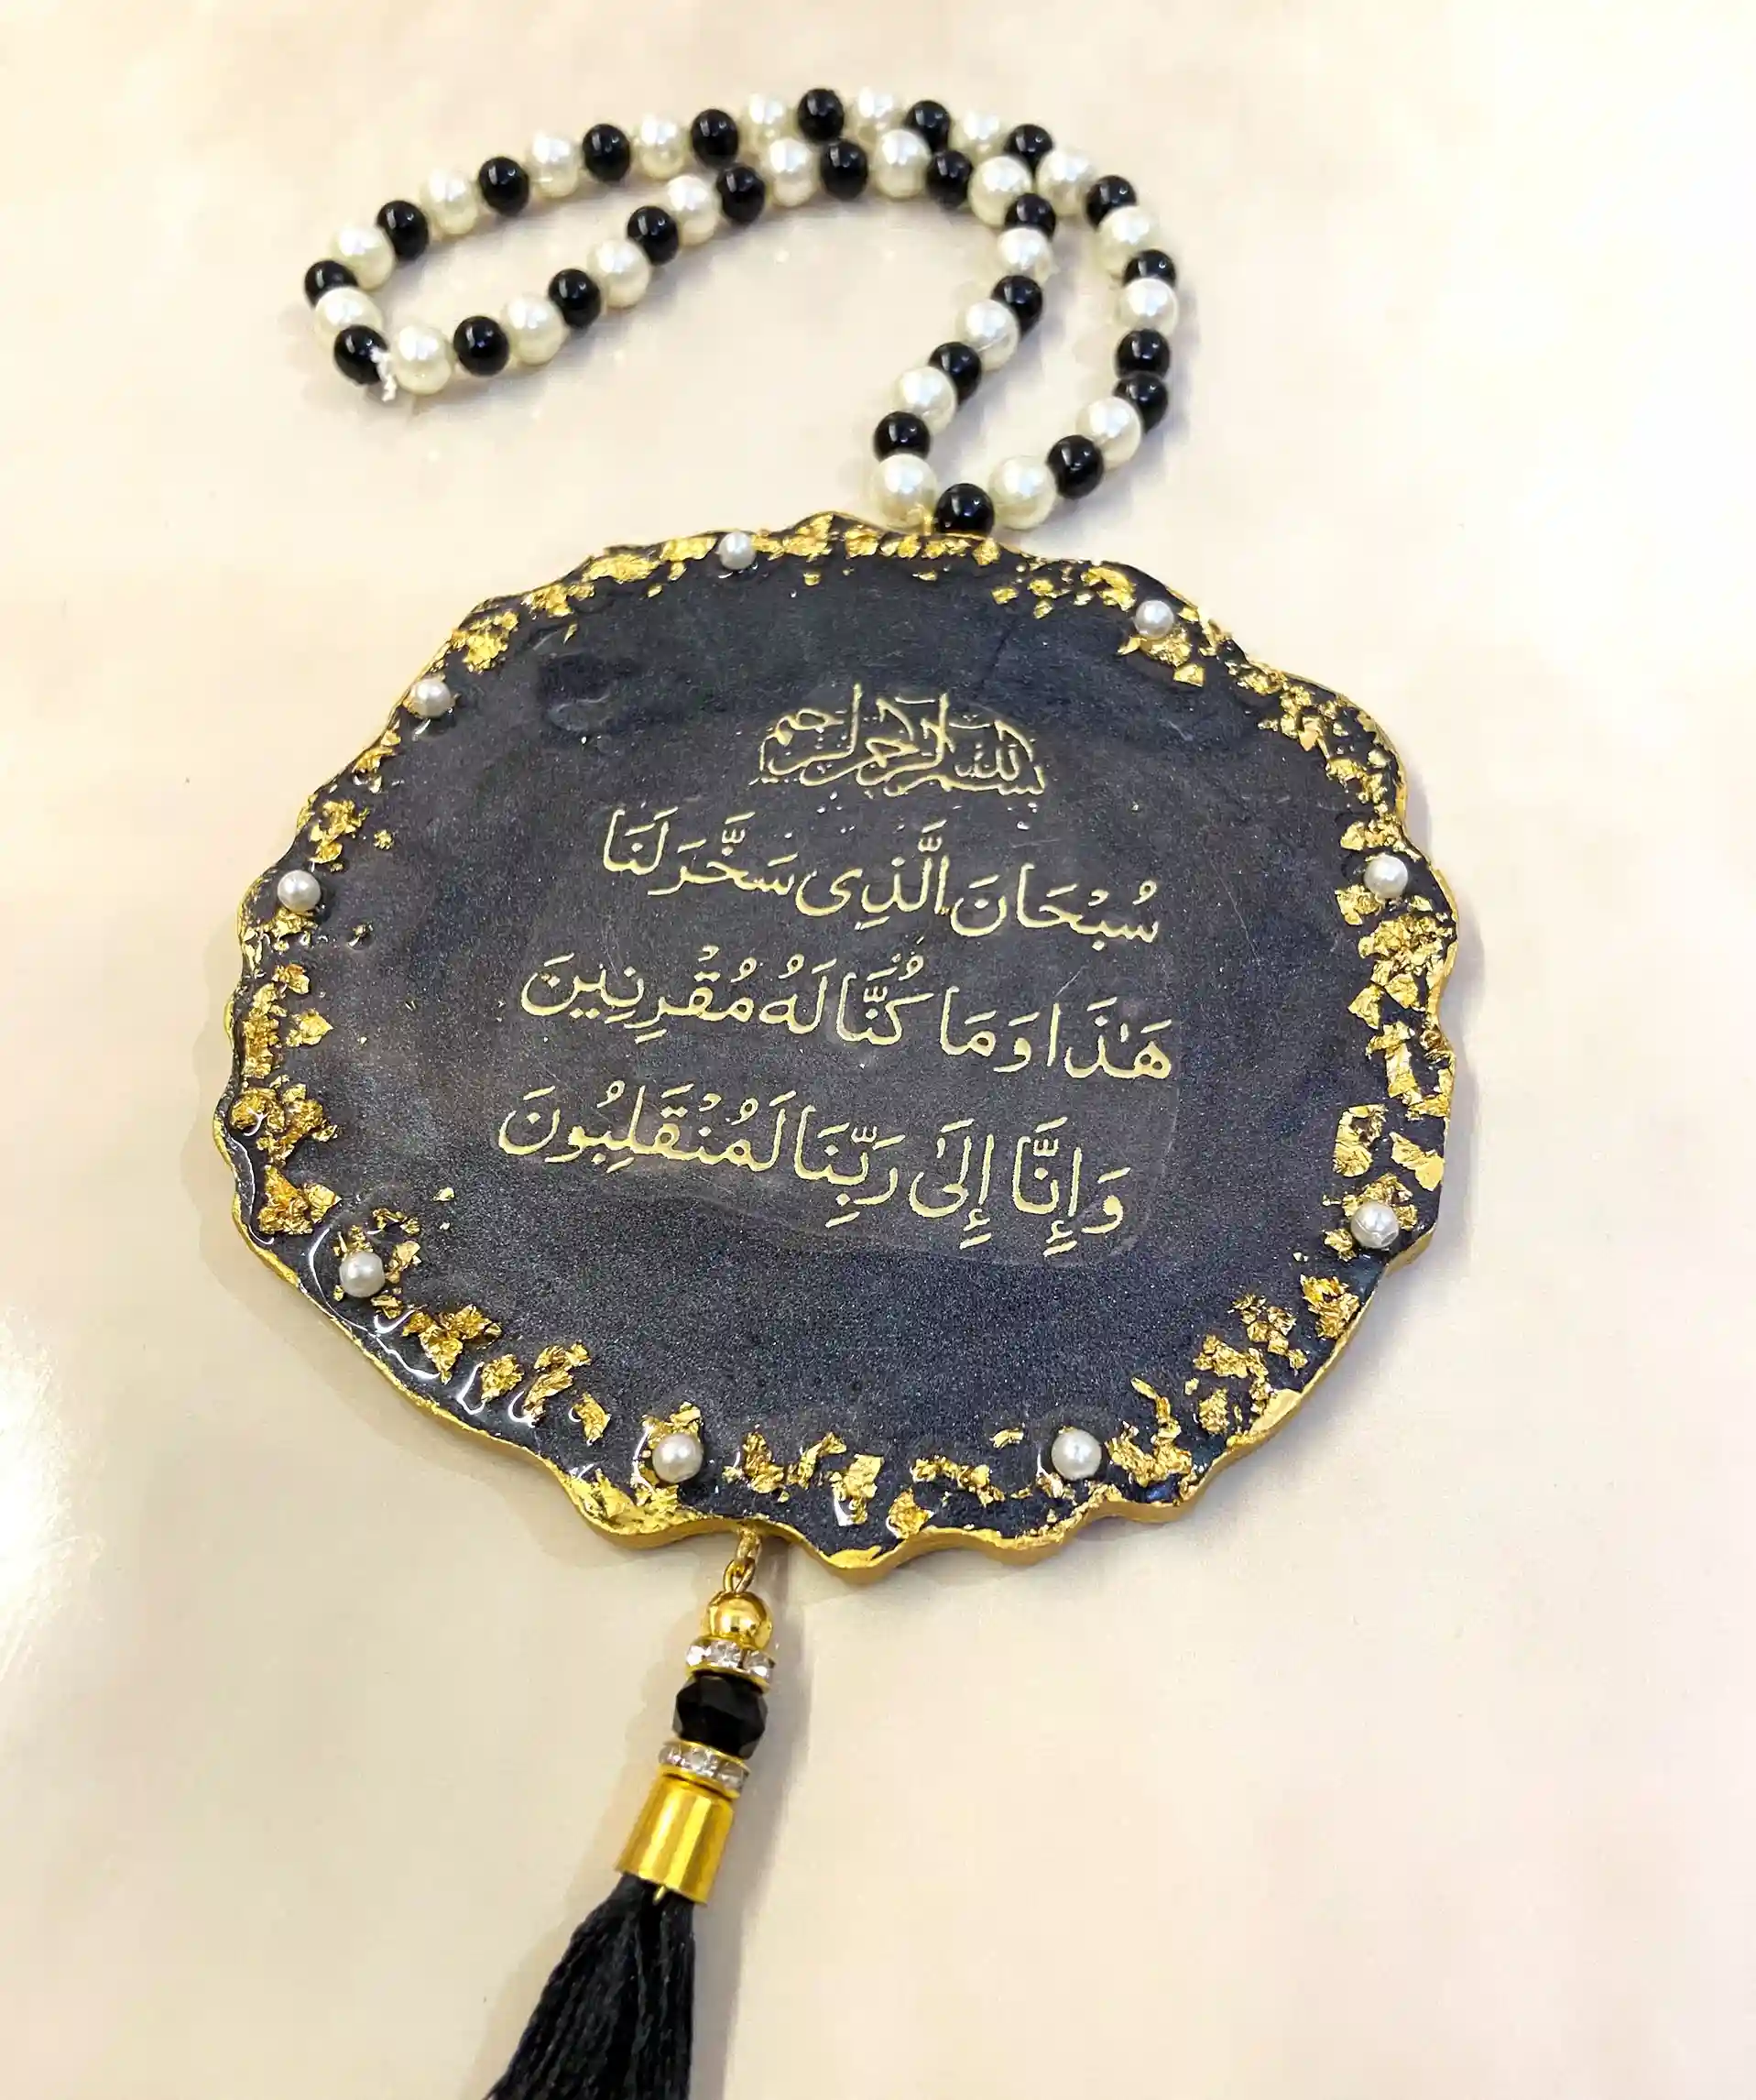 بسم الله الرحمن الرحيم
سُبْحَانَ الَّذِی سَخَّرَ لَنَا
هَٰذَا وَمَا كُنَّا لَهُ مُقْرِنِينَ
وَإِنَّا إِلَىٰ رَبِّنَا لَمُنْقَلِبُونَ